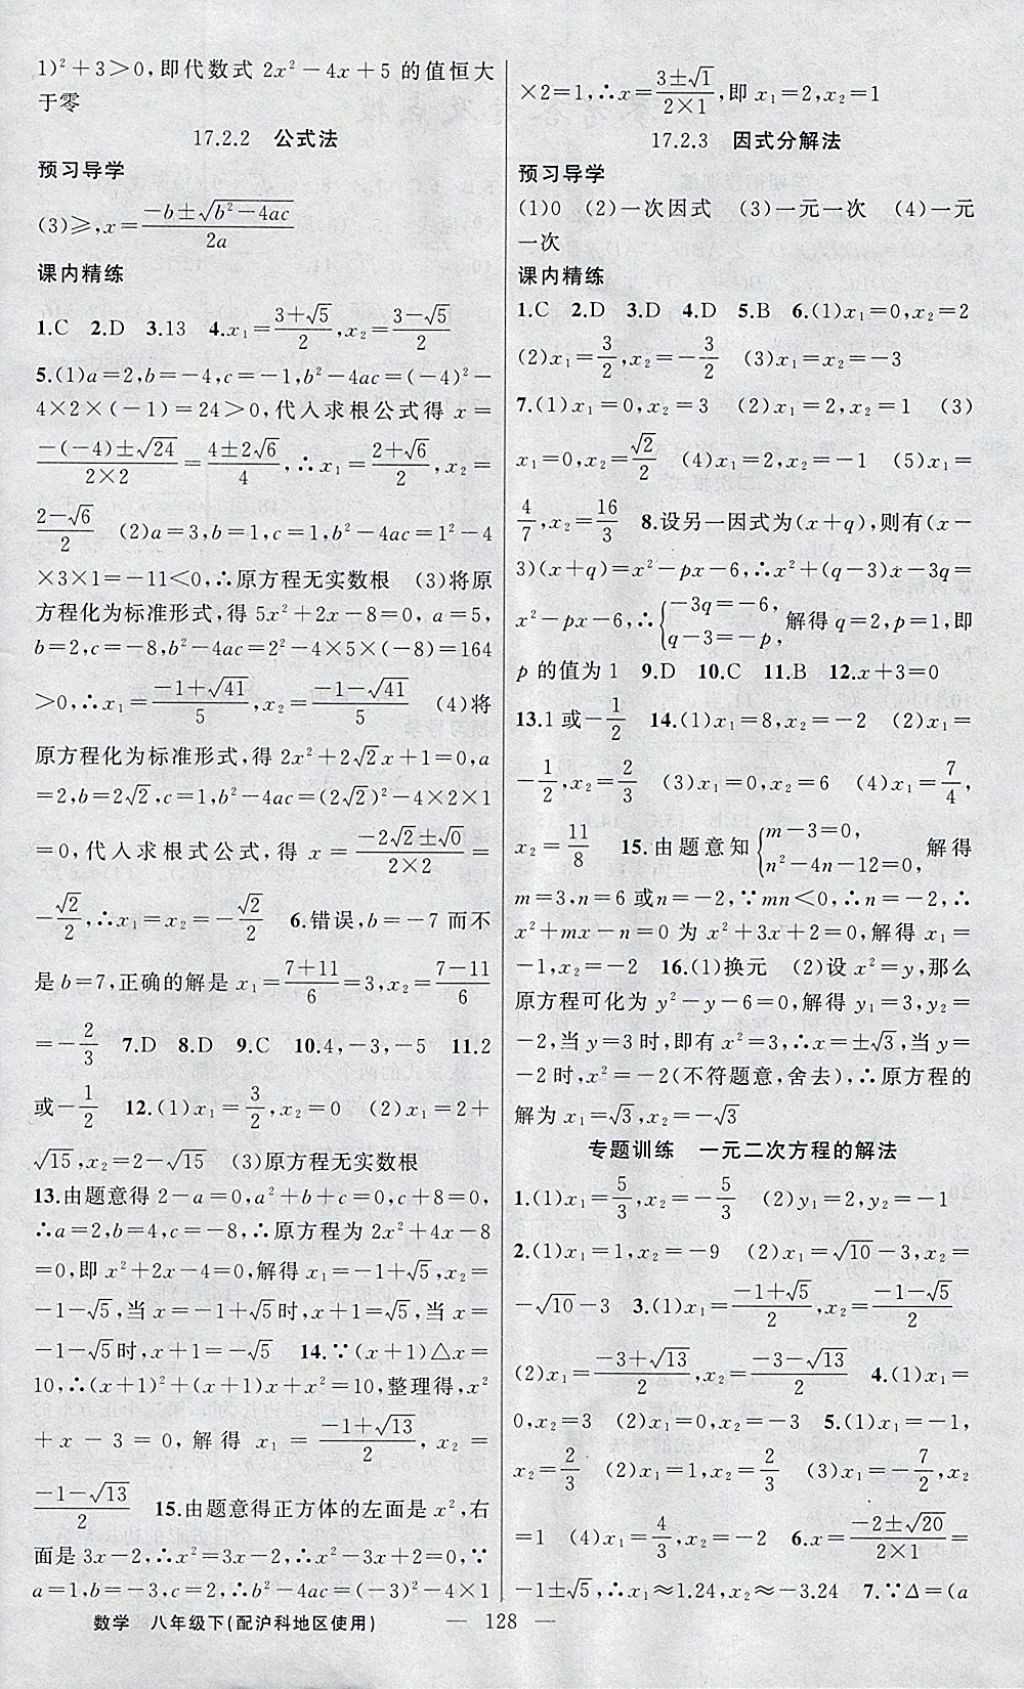 1)²+3>0,即代数式 2x²-4x+5 的值恒大
于零
17.2.2 公式法
预习导学
(3)≥,x=\frac{-b±\sqrt{b²-4ac}}{2a}
课内精练
1.C 2.D 3.13 4.x₁=\frac{3+\sqrt{5}}{2},x₂=\frac{3-\sqrt{5}}{2}
5.(1)a=2,b=-4,c=-1,b²-4ac=(-4)²-
4×2×(-1)=24>0,代入求根公式得 x=
\frac{-(-4)±\sqrt{24}}{2×2}=\frac{4±2\sqrt{6}}{4},∴x₁=\frac{2+\sqrt{6}}{2},x₂=
\frac{2-\sqrt{6}}{2} (2)a=3,b=1,c=1,b²-4ac=1²-4
×3×1=-11<0,∴原方程无实数根 (3)将原
方程化为标准形式,得 5x²+2x-8=0, a=5,
b=2,c=-8,b²-4ac=2²-4×5×(-8)=164
>0,∴x₁=\frac{-1+\sqrt{41}}{5},x₂=\frac{-1-\sqrt{41}}{5} (4)将
原方程化为标准形式,得 2x²+2\sqrt{2}x+1=0,a
=2,b=2\sqrt{2},c=1,b²-4ac=(2\sqrt{2})²-4×2×1
=0,代入求根式公式,得 x=\frac{-2\sqrt{2}±\sqrt{0}}{2×2}=
-\frac{\sqrt{2}}{2},∴x₁=x₂=-\frac{\sqrt{2}}{2} 6.错误,b=-7 而不
是 b=7,正确的解是 x₁=\frac{7+11}{6}=3,x₂=\frac{7-11}{6}
=-\frac{2}{3} 7.D 8.D 9.C 10.4,-3,-5 11.2
或-\frac{1}{2} 12.(1)x₁=\frac{3}{2},x₂=0 (2)x₁=2+
\sqrt{15},x₂=2-\sqrt{15} (3)原方程无实数根
13.由题意得 2-a=0,a²+b+c=0,c+8=0,
∴a=2,b=4,c=-8,∴原方程为 2x²+4x-8
=0,即 x²+2x-4=0,解得 x₁=-1+\sqrt{5},x₂=
-1-\sqrt{5},当 x=-1+\sqrt{5}时,x+1=\sqrt{5},当 x=
-1-\sqrt{5}时,x+1=-\sqrt{5} 14.∵(x+1)△x=
10,∴(x+1)²+(x+1)x+x²=10,整理得,x²
+x-3=0,解得 x₁=\frac{-1+\sqrt{13}}{2},x₂=
\frac{-1-\sqrt{13}}{2} 15.由题意得正方体的左面是 x²,右
面是 3x-2,∴x²=3x-2,∴x²-3x+2=0,∵
a=1,b=-3,c=2,∴b²-4ac=(-3)²-4×1
×2=1,∴x=\frac{3±\sqrt{1}}{2×1},即 x₁=2,x₂=1
17.2.3 因式分解法
预习导学
(1)0 (2)一次因式 (3)一元一次 (4)一元
一次
课内精练
1.C 2.D 3.D 4.D 5.B 6.(1)x₁=0,x₂=2
(2)x₁=\frac{3}{2},x₂=-\frac{3}{2} (3)x₁=x₂=-3
7.(1)x₁=0,x₂=3 (2)x₁=2,x₂=1 (3)
x₁=0,x₂=\frac{\sqrt{2}}{2} (4)x₁=2,x₂=-1 (5)x₁=
\frac{4}{7},x₂=\frac{16}{3} 8.设另一因式为(x+q),则有(x-
3)(x+q)=x²-px-6,∴x²+(q-3)x-3q=
x²-px-6,∴{-3q=-6, q-3=-p,解得 q=2,p=1,即
p 的值为 1 9.D 10.C 11.B 12.x+3=0
13.1 或-\frac{1}{2} 14.(1)x₁=8,x₂=-2 (2)x₁=
-\frac{1}{2},x₂=\frac{2}{3} (3)x₁=0,x₂=6 (4)x₁=\frac{7}{4},
x₂=\frac{11}{8} 15.由题意知{m-3=0, n²-4n-12=0,解得
m=3,n=6 或n=-2,∵mn<0,∴n=-2,∴
x²+mx-n=0 为 x²+3x+2=0,解得 x₁=
-1,x₂=-2 16.(1)换元 (2)设 x²=y,那么
原方程可化为 y²-y-6=0,解得 y₁=3,y₂=
-2,当 y=3 时,即有 x²=3,∴x=±\sqrt{3},当 y=
-2时,x²=-2(不符题意,舍去),∴原方程的
解为 x₁=\sqrt{3},x₂=-\sqrt{3}
专题训练 一元二次方程的解法
1.(1)x₁=\frac{5}{3},x₂=-\frac{5}{3} (2)y₁=2,y₂=-1
2.(1)x₁=1,x₂=-9 (2)x₁=\sqrt{10}-3,x₂=
-\sqrt{10}-3 3.(1)x₁=\frac{-1+\sqrt{5}}{2},x₂=\frac{-1-\sqrt{5}}{2}
(2)x₁=\frac{-3+\sqrt{13}}{2},x₂=\frac{-3-\sqrt{13}}{2} 4.(1)x₁=
0,x₂=3 (2)x₁=0,x₂=-3 5.(1)x₁=-1,
x₂=\frac{2}{3} (2)x₁=1,x₂=\frac{2}{3} (3)x₁=-\frac{7}{2},x₂
=1 (4)x₁=\frac{4}{3},x₂=-2 6.x=\frac{-2±\sqrt{20}}{2×1}=
-1±\sqrt{5},∴x₁≈1.24,x₂≈-3.24 7.∵Δ=(a
数学 八年级下(配沪科地区使用) — 128 —